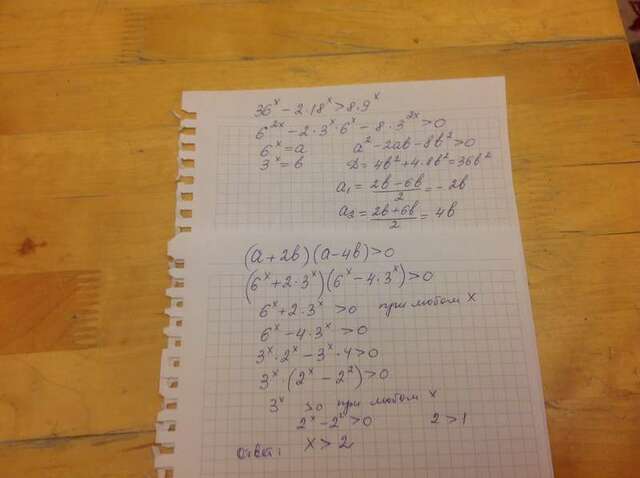 36ˣ − 2·18ˣ > 8·9ˣ
6²ˣ − 2·3ˣ·6ˣ − 8·3²ˣ > 0
6ˣ = a a² − 2ab − 8b² > 0
3ˣ = b D = 4b² + 4·8b² = 36b²
a₁ = (2b − 6b)/2 = − 2b
a₂ = (2b + 6b)/2 = 4b
(a + 2b)(a − 4b) > 0
(6ˣ + 2·3ˣ)(6ˣ − 4·3ˣ) > 0
6ˣ + 2·3ˣ > 0 при любом x
6ˣ − 4·3ˣ > 0
3ˣ·2ˣ − 3ˣ·4 > 0
3ˣ·(2ˣ − 2²) > 0
3ˣ > 0 при любом x
2ˣ − 2² > 0 2 > 1
Ответ: x > 2